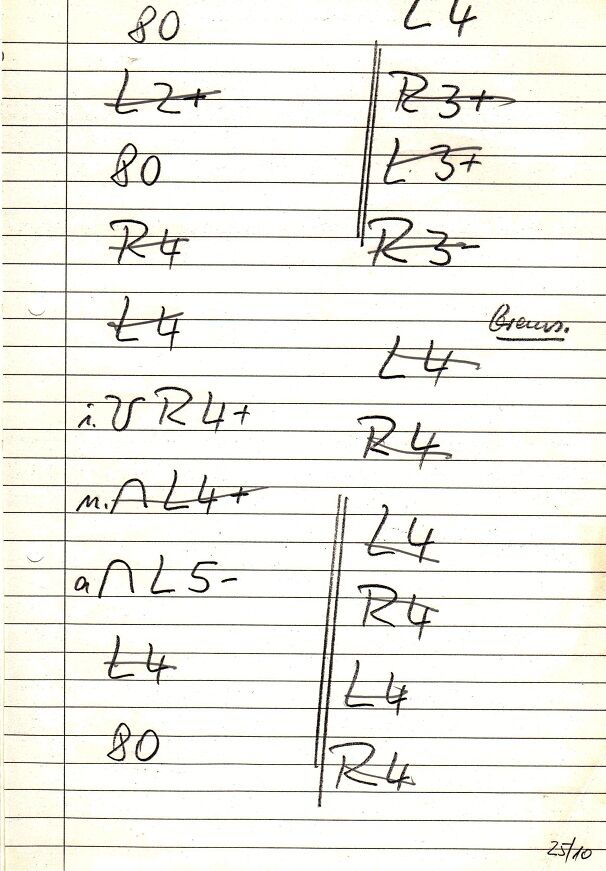 80
L 2+
80
R 4
L 4
i. ʊ R 4+
m. ∩ L 4+
a ∩ L 5-
L 4
80
L 4
R 3+
L 3+
R 3-
Brems.
L 4
R 4
L 4
R 4
L 4
R 4
25/10